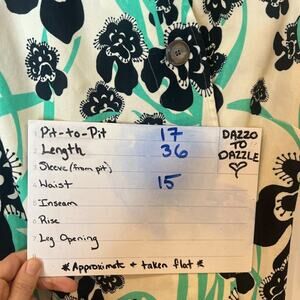 Pit-to-Pit 17
Length 36
Sleeve (from pit)
Waist 15
Inseam
Rise
Leg Opening
* Approximate + taken flat *
DAZZO
TO
DAZZLE